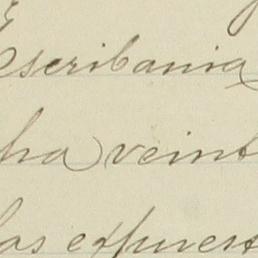 Escribania
ha veint
las expuest